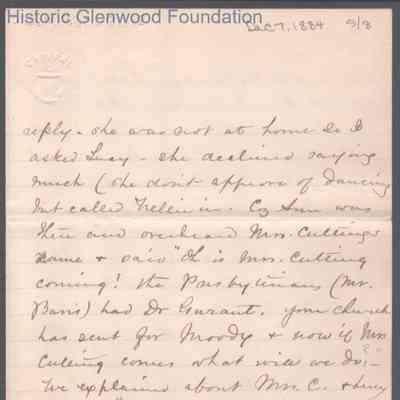 Historic Glenwood Foundation
Dec 7, 1884
reply - she was not at home so I
asked Lucy - she declined saying
much (she don't approve of dancing
but called Helen in. Cz Ann was
there and overheard Mrs. Cuttings
name & said "Oh is Mrs. Cutting
coming! the Presbyterians (Mr.
Baris) had Dr Gurant. your church
has sent for Moody & now if Mrs
Cutting comes what will we do?"-
We explained about Mrs. C. & Lucy